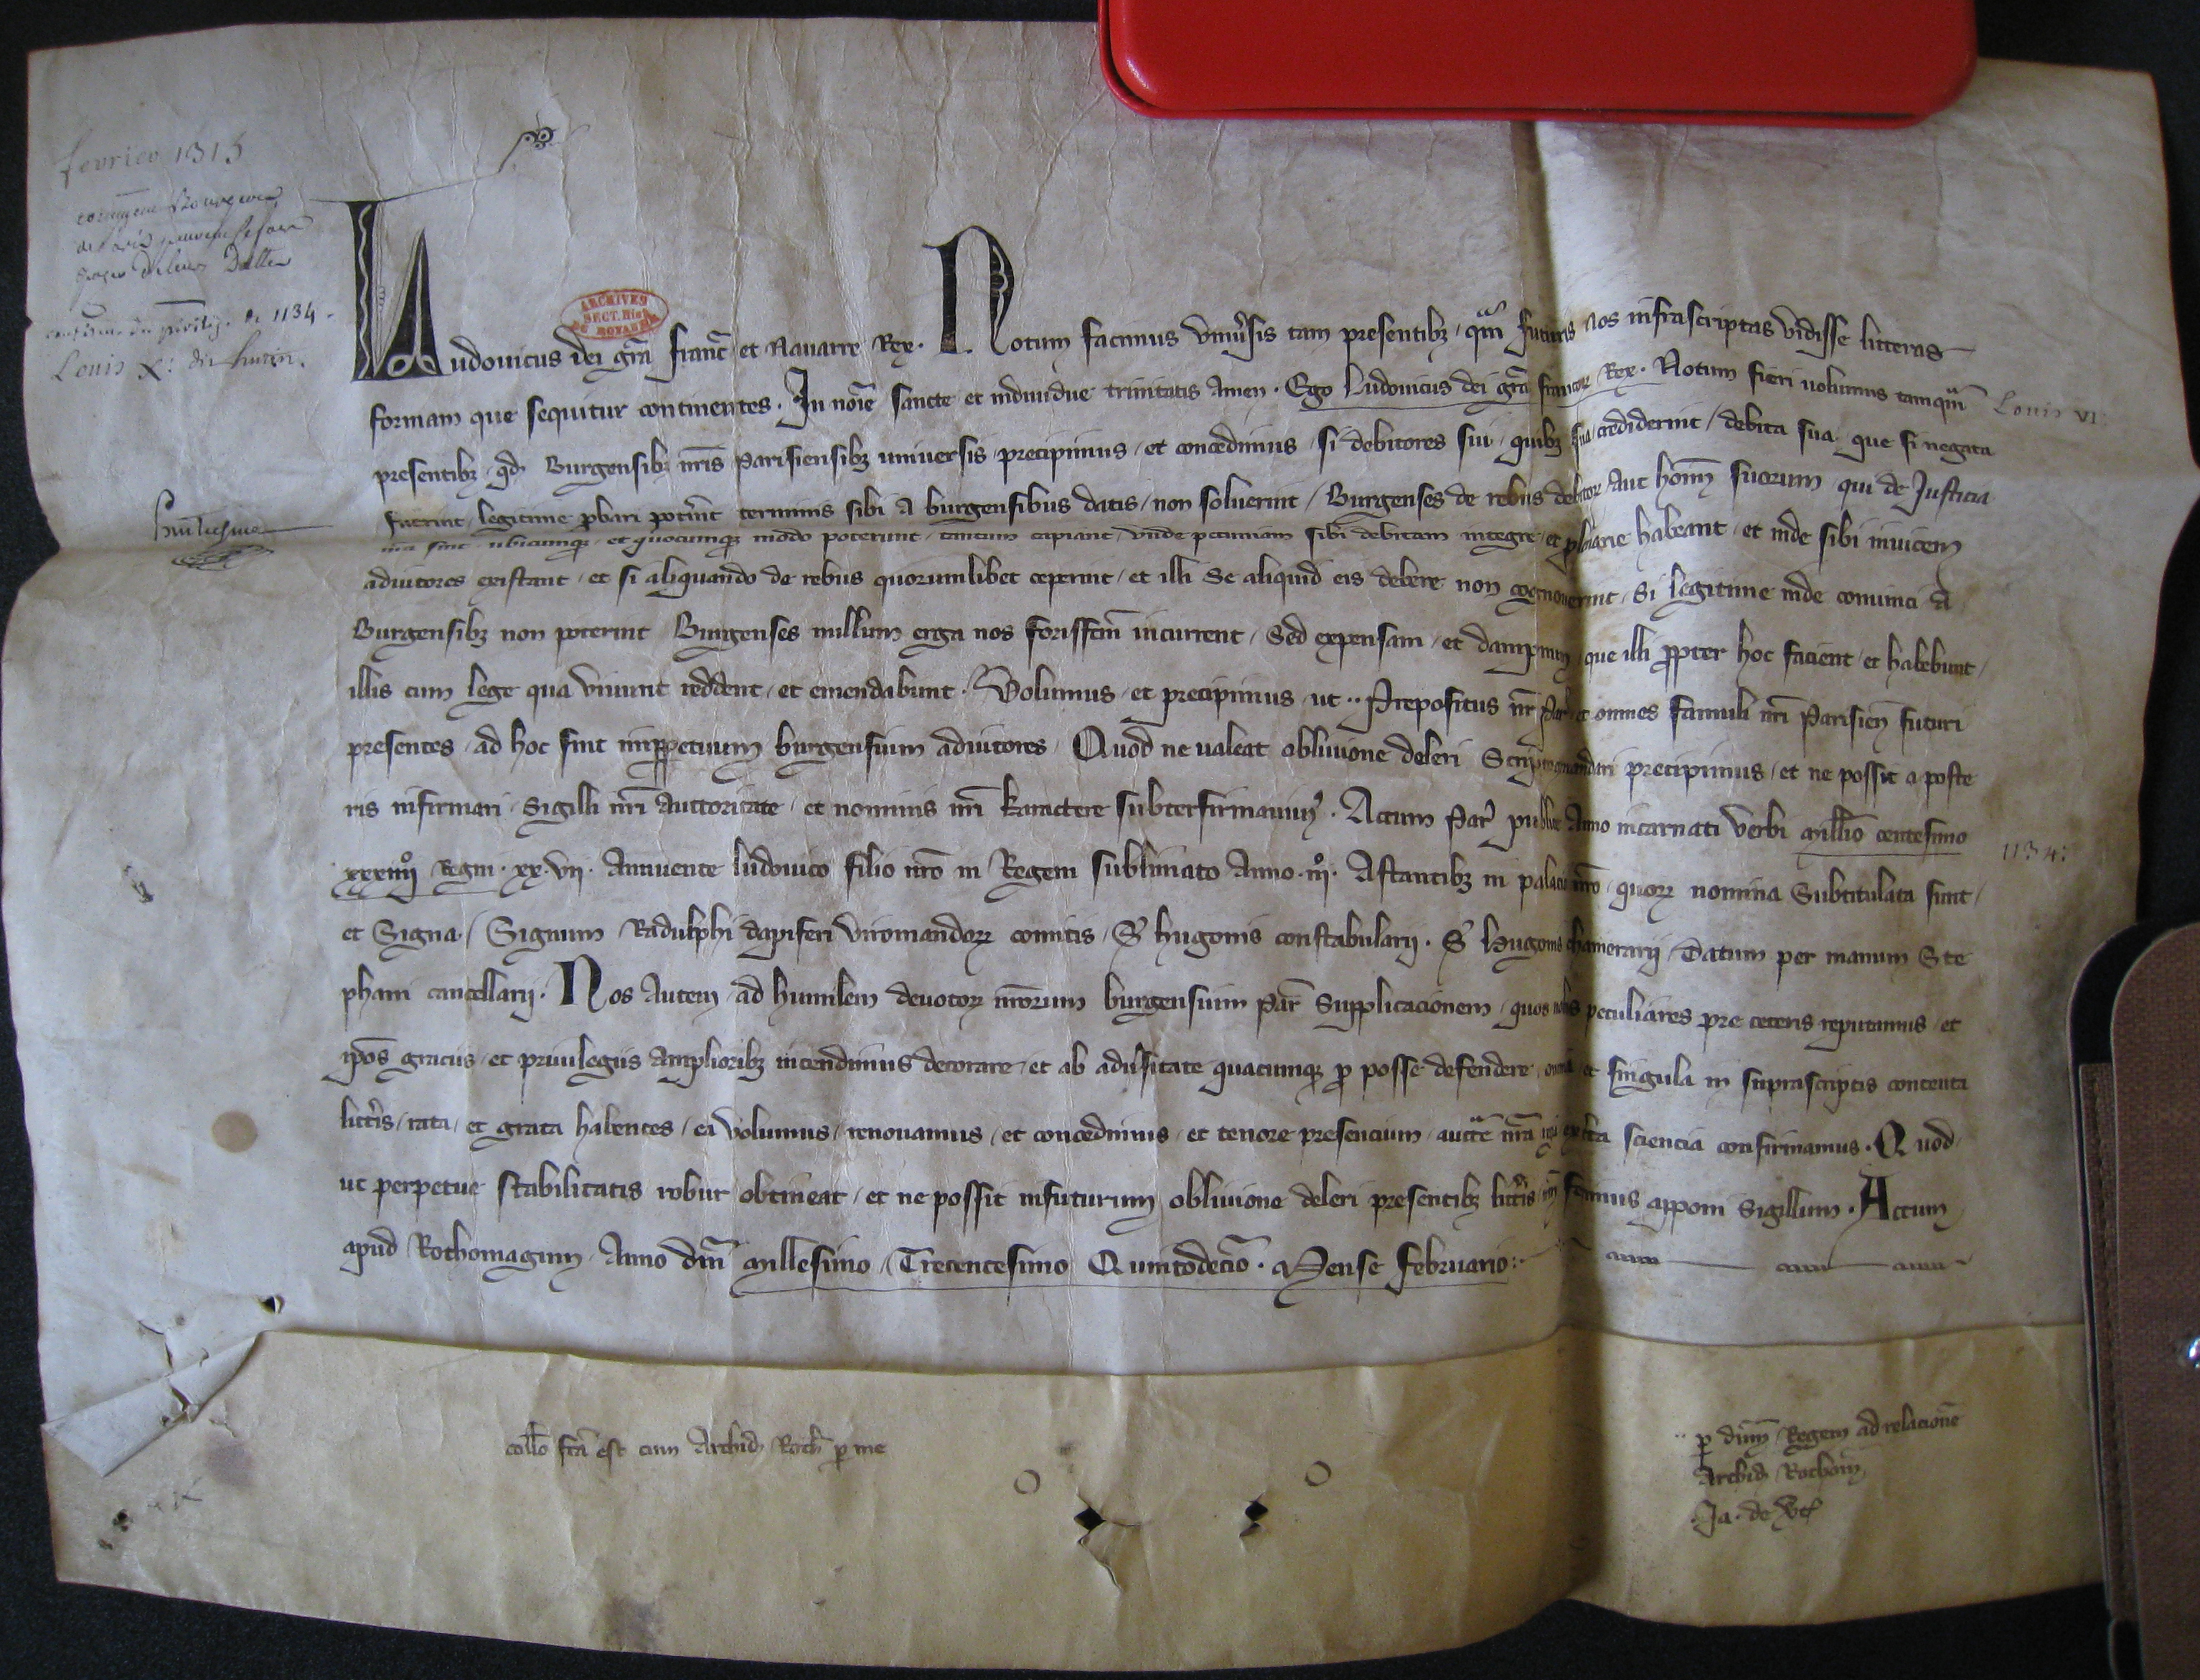 fevrier 1315
confirme du privileg. de 1134.
Louis X. dit hutin.
ARCHIVES
SECT. HIST.
DU ROYAUME
Ludovicus dei gr̄a franc̄ et Nauarre Rex. Notum facimus vniuˀsis tam presentibꝫ, qᵃm futuris nos infrascriptas vidisse litteras
formam que sequitur continentes. In noīe sancte et indiuidue trinitatis amen. Ego Ludouicus dei gr̄a francoꝝ Rex. Notum fieri uolumus tamqᵃm Louis VI
presentibꝫ, qd̄ Burgensibꝫ nr̄is Parisiensibꝫ uniuersis precipimus, et concedimus, si debitores sui, quibꝫ sua crediderint, debita sua, que si negata
fuerint, legitime ꝓbari potˀint terminis sibi a burgensibus datis, non soluerint, Burgenses de rebus debitoꝝ aut hom̄ suorum qui de Justicia
nr̄a sint, ubicumqꝫ, et quocumqꝫ modo poterunt, tantum capiant, vnde pecuniam sibi debitam integre, et plenarie habeant, et inde sibi inuicem
adiutores existant, et si aliquando de rebus quorumlibet ceperint, et illi se aliquid eis debere non cognouerint, si legitime inde conuinci a
Burgensibꝫ non poterint, Burgenses nullum erga nos forisfc̄m incurrent, sed expensam, et dampnum, que illi ꝓpter hoc facient, et habebunt,
illis cum lege qua viuunt reddent, et emendabunt. Volumus, et precipimus, ut .. Prepositus nr̄ Par̄ et omnes famuli nr̄i Parisien̄ futuri
presentes, ad hoc sint inꝑpetuum burgensium adiutores. Quod ne ualeat obliuione deleri scripto mandari precipimus, et ne possit a poste
ris infirmari, Sigilli nr̄i auctoritate, et nominis nr̄i karactere subterfirmauimꝰ. Actum Par̄ publice Anno incarnati verbi millīo centesimo 1134.
xxxiiijº, Regni. xx. vij. Annuente ludouico filio nr̄o in Regem sublimato anno. iijº. Astantibꝫ in palacio nr̄o, quoꝝ nomina subtitulata sunt,
et Signa. Signum Radulphi dapiferi viromandoꝝ comitis, S' hugonis constabularij. S' hugonis camerarij. Datum per manum Ste
phani cancellarij. Nos autem, ad humilem deuotoꝝ nr̄orum burgensium Par̄ supplicacionem, quos nobis peculiares pre ceteris reputamus, et
ip̄os graciis, et priuilegiis amplioribꝫ intendimus decorare, et ab aduˀsitate quacumqꝫ ꝓ posse defendere, omnia et singula in suprascriptis contenta
littˀis, rata, et grata habentes, ea volumus, renouamus, et concedimus, et tenore presencium, auctᵉ nr̄a, ex certa sciencia confirmamus. Quod
ut perpetue stabilitatis robur obtineat, et ne possit infuturum obliuione deleri presentibꝫ littˀis nr̄m fecimus apponi sigillum. Actum
apud Rothomagum, Anno dn̄i millesimo, Trecentesimo Quintodecīo. Mense februario:
coll̄o fc̄a est cum Archid̄ Roth̄ ꝑ me
ꝑ dn̄m Regem ad relacionē
Archid̄ Rothom̄
Ja. de